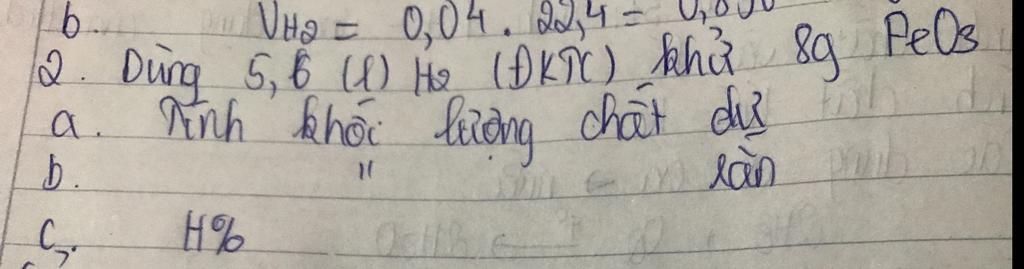 b. VH2 = 0,04 . 22,4 = 0,896
2. Dùng 5,6 (l) H2 (ĐKTC) khử 8g FeO3
a. Tính khối lượng chất dư
b. " rắn
c, H%